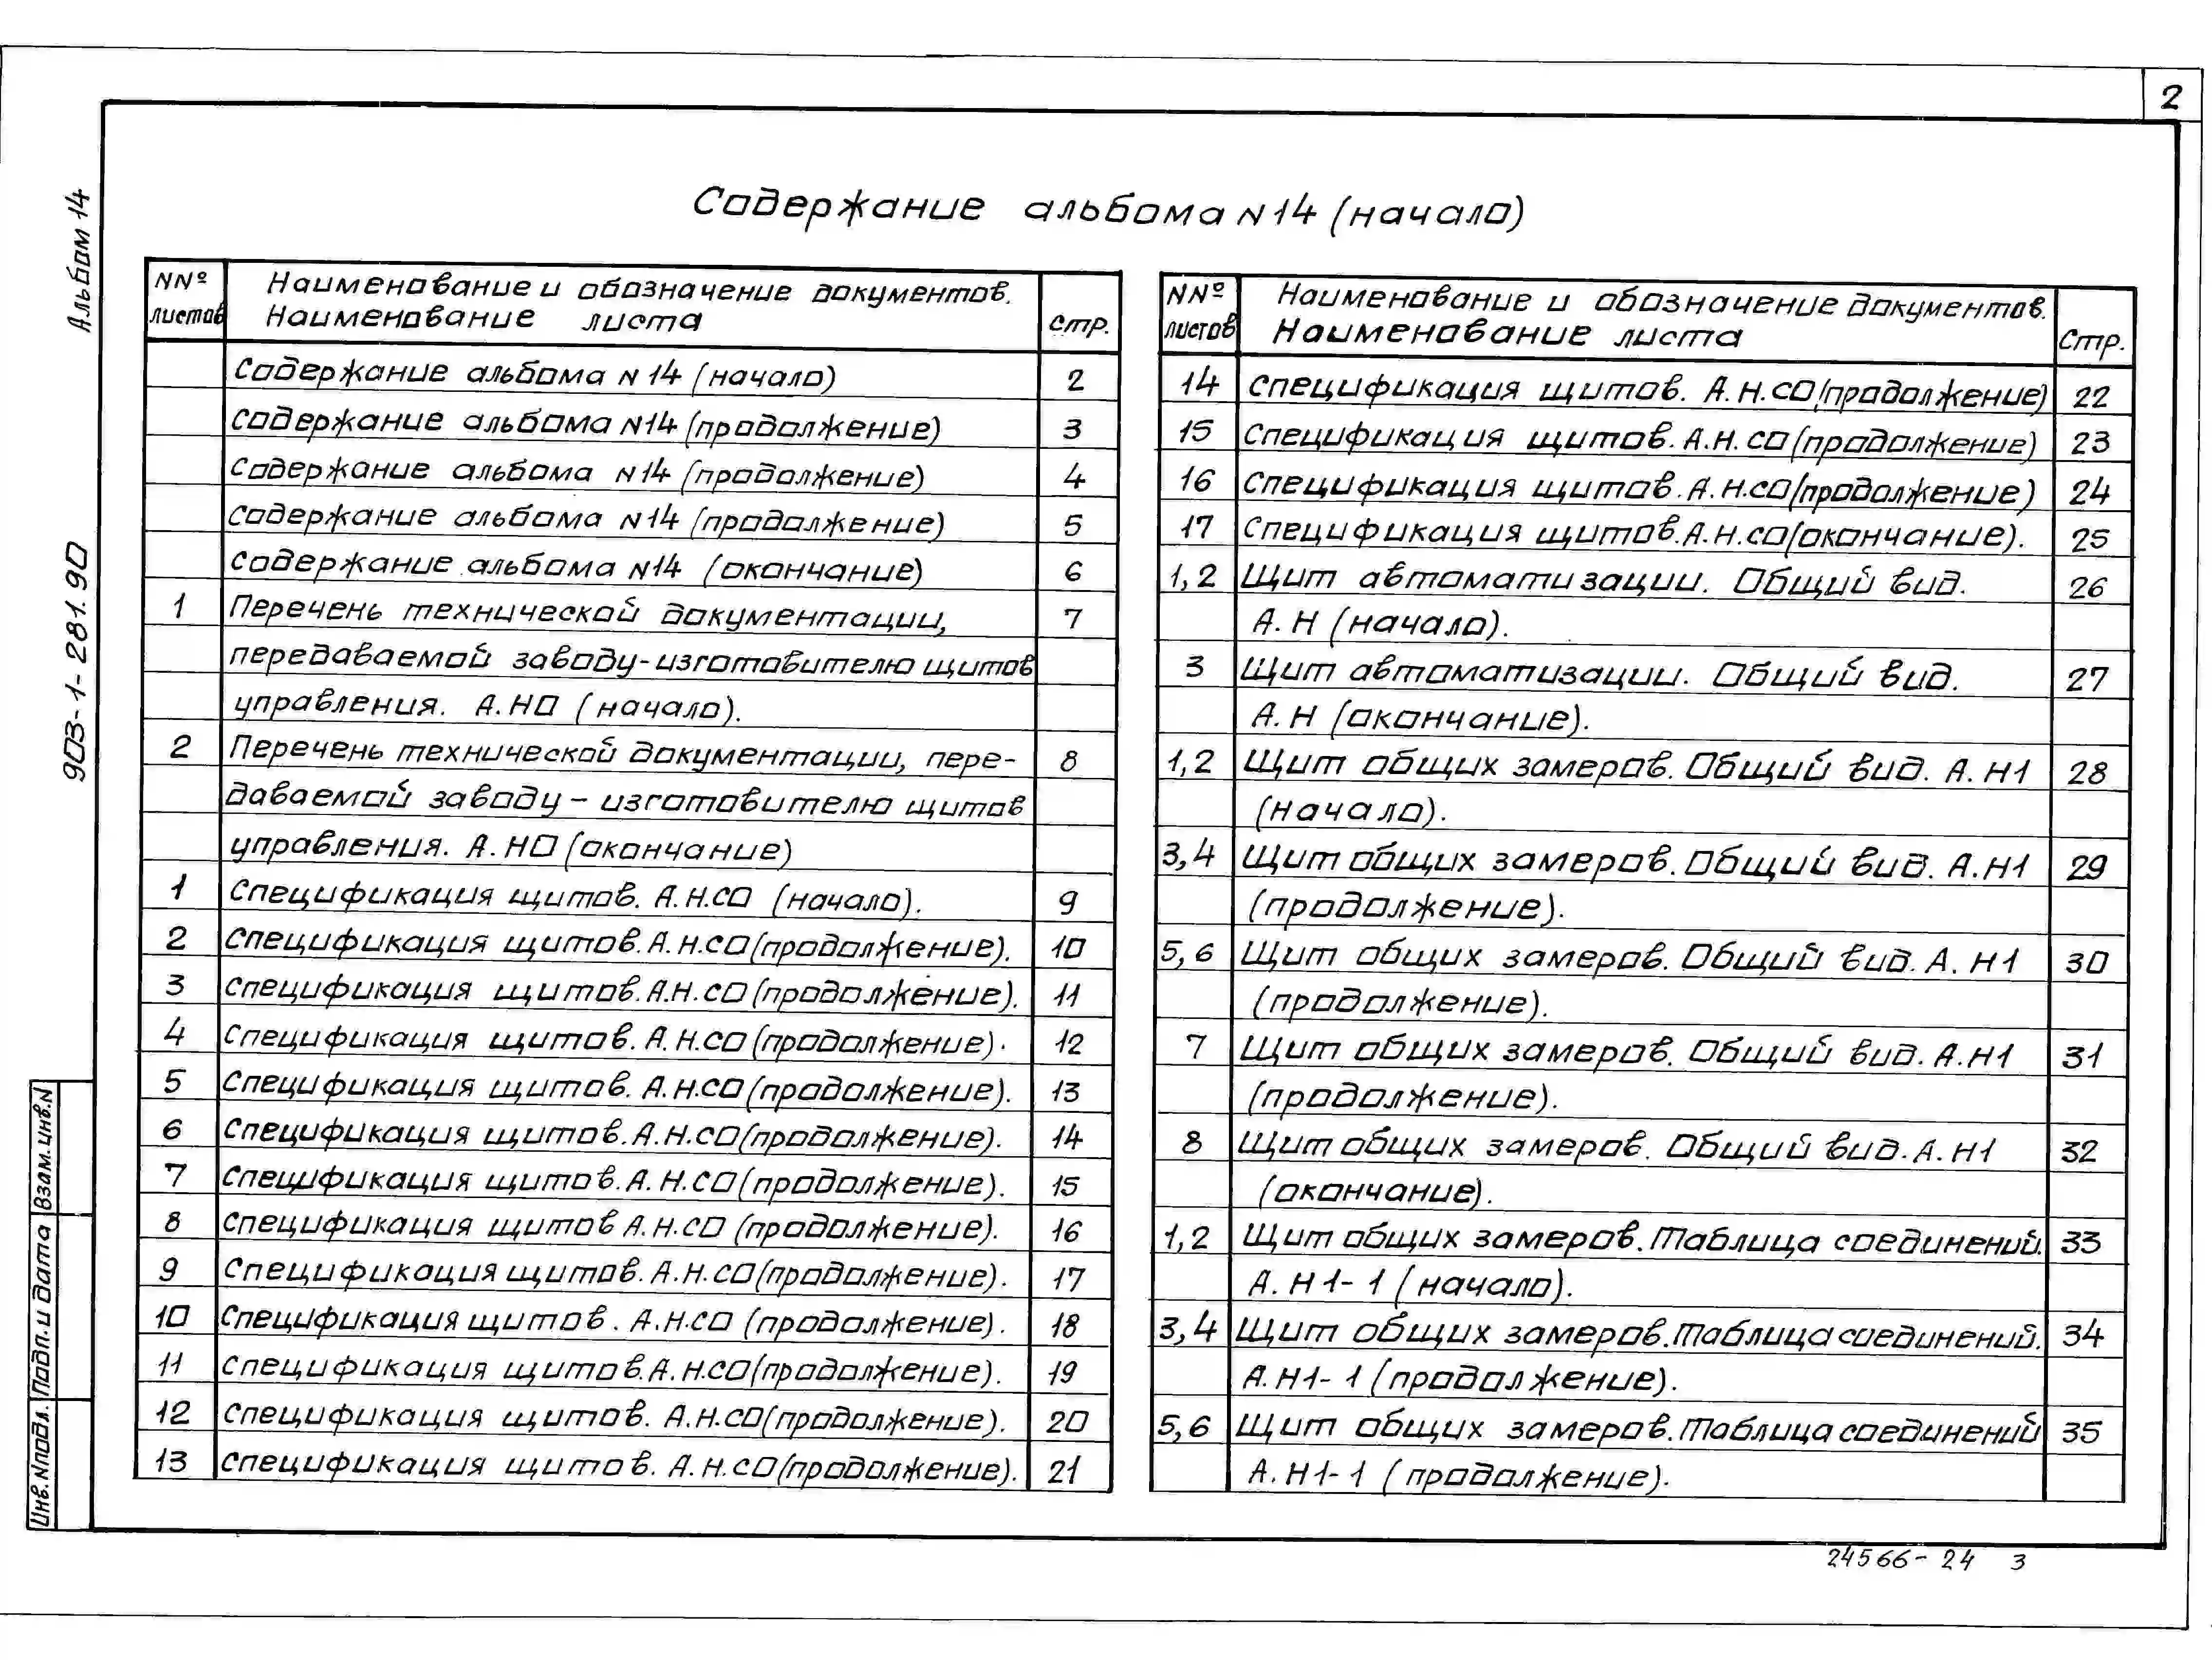 2
Альбом 14
903-1-281.90
Содержание альбома N14 (начало)
NNº листов
Наименование и обозначение документов.
Наименование листа
стр.
Содержание альбома N14 (начало) 2
Содержание альбома N14 (продолжение) 3
Содержание альбома N14 (продолжение) 4
Содержание альбома N14 (продолжение) 5
Содержание альбома N14 (окончание) 6
1 Перечень технической документации, 7
передаваемой заводу-изготовителю щитов
управления. А.НО (начало).
2 Перечень технической документации, пере- 8
даваемой заводу-изготовителю щитов
управления. А.НО (окончание)
1 Спецификация щитов. А.Н.СО (начало). 9
2 Спецификация щитов. А.Н.СО (продолжение). 10
3 Спецификация щитов. А.Н.СО (продолжение). 11
4 Спецификация щитов. А.Н.СО (продолжение). 12
5 Спецификация щитов. А.Н.СО (продолжение). 13
6 Спецификация щитов. А.Н.СО (продолжение). 14
7 Спецификация щитов. А.Н.СО (продолжение). 15
8 Спецификация щитов А.Н.СО (продолжение). 16
9 Спецификация щитов. А.Н.СО (продолжение). 17
10 Спецификация щитов. А.Н.СО (продолжение). 18
11 Спецификация щитов. А.Н.СО (продолжение). 19
12 Спецификация щитов. А.Н.СО (продолжение). 20
13 Спецификация щитов. А.Н.СО (продолжение). 21
NNº листов
Наименование и обозначение документов.
Наименование листа
Стр.
14 Спецификация щитов. А.Н.СО (продолжение) 22
15 Спецификация щитов. А.Н.СО (продолжение) 23
16 Спецификация щитов. А.Н.СО (продолжение) 24
17 Спецификация щитов. А.Н.СО (окончание). 25
1,2 Щит автоматизации. Общий вид. 26
А.Н (начало).
3 Щит автоматизации. Общий вид. 27
А.Н (окончание).
1,2 Щит общих замеров. Общий вид. А.Н1 28
(начало).
3,4 Щит общих замеров. Общий вид. А.Н1 29
(продолжение).
5,6 Щит общих замеров. Общий вид. А.Н1 30
(продолжение).
7 Щит общих замеров. Общий вид. А.Н1 31
(продолжение).
8 Щит общих замеров. Общий вид. А.Н1 32
(окончание).
1,2 Щит общих замеров. Таблица соединений. 33
А.Н1-1 (начало).
3,4 Щит общих замеров. Таблица соединений. 34
А.Н1-1 (продолжение).
5,6 Щит общих замеров. Таблица соединений 35
А.Н1-1 (продолжение).
Взам.инв.N
Подп.и дата
Инв.Nподл.
24566-24 3